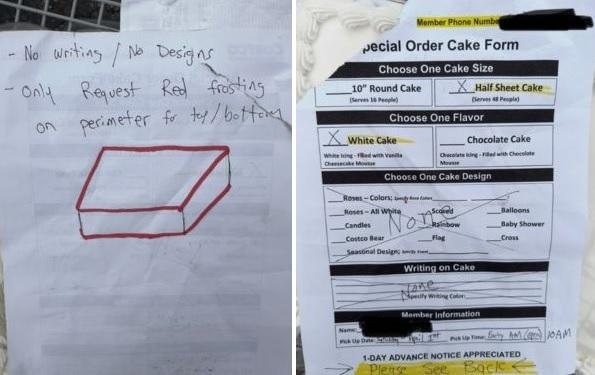 - No writing / No Designs
- Only Request Red frosting
on perimeter for top/bottom
Member Phone Numbe
pecial Order Cake Form
Choose One Cake Size
10" Round Cake
(Serves 16 People)
X Half Sheet Cake
(Serves 48 People)
Choose One Flavor
X White Cake
White Icing - Filled with Vanilla
Cheesecake Mousse
Chocolate Cake
Chocolate Icing - Filled with Chocolate
Mousse
Choose One Cake Design
Roses – Colors; Specify Rose Colors
Roses – All White
Scored
Balloons
Candles
Rainbow
Baby Shower
Costco Bear
Flag
Cross
Seasonal Design;
None
Writing on Cake
None
Specify Writing Color:
Member Information
Name:
Pick Up Date: Saturday April 1st
Pick Up Time: Early AM (open) 10AM
1-DAY ADVANCE NOTICE APPRECIATED
→ Please See Back ←